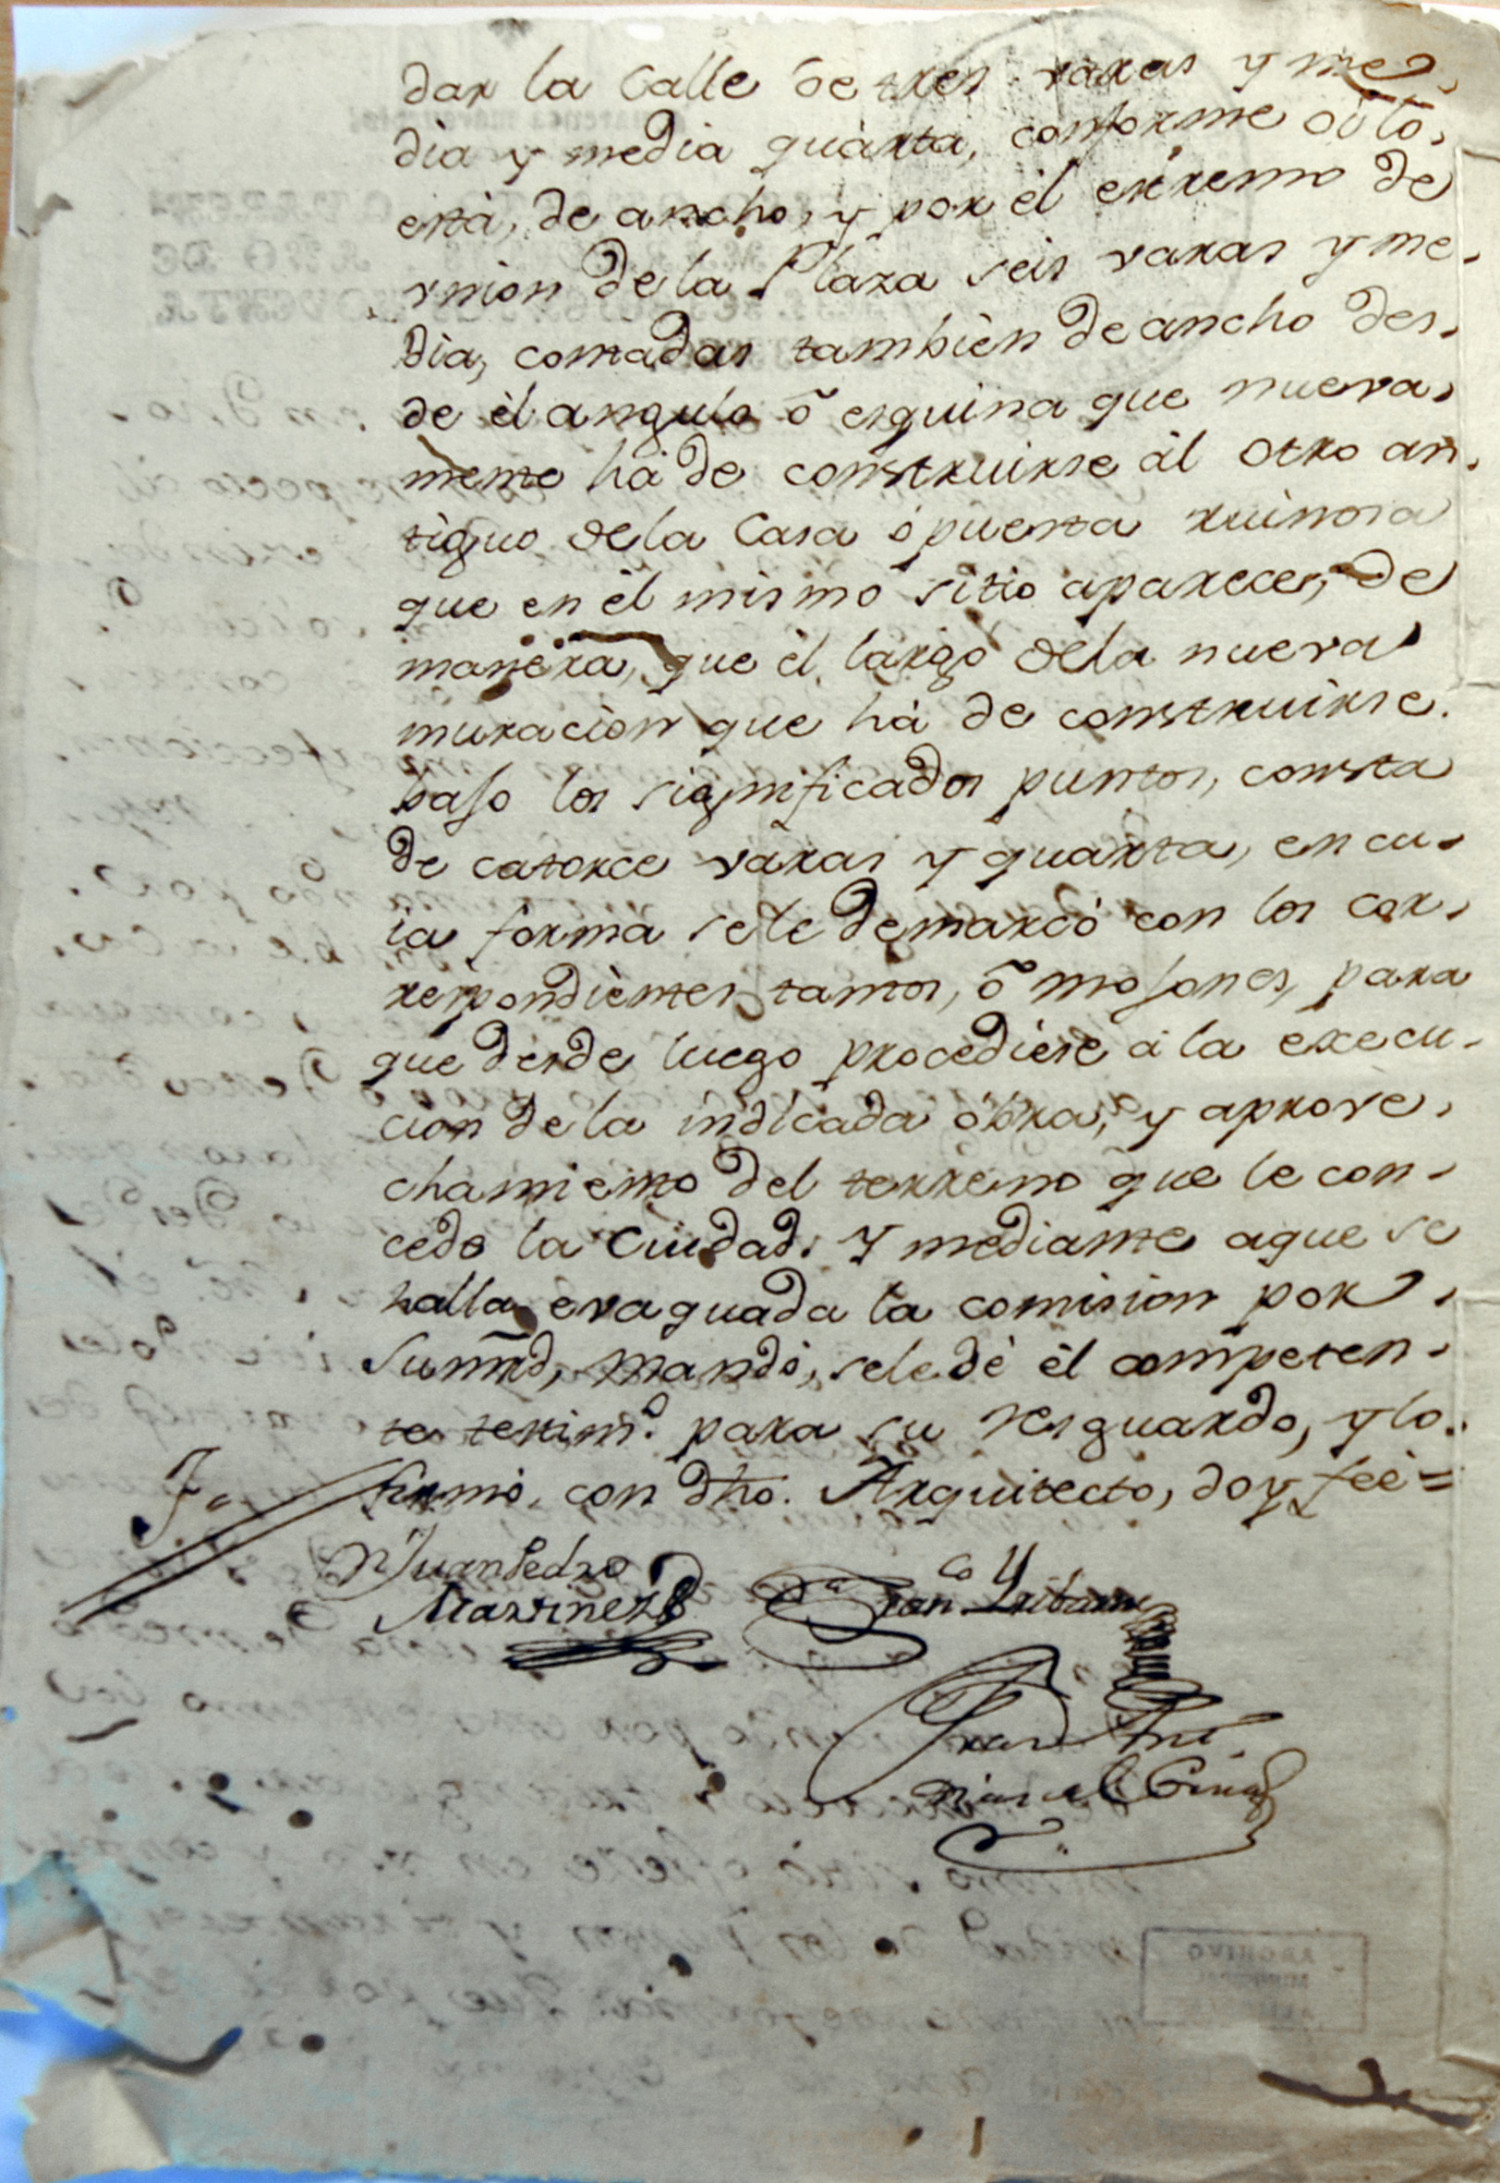 dar la Calle de tres varas y me-
dia y media quàrta, conforme oi lo
està, de ancho, y por èl extremo de
vnion de la Plaza seis varas y me-
dia, contadas tambièn de ancho des-
de èl angulo ō esquina que nueva-
mente hà de construirse àl otro an-
tiguo dela Casa ò puerta ruinosa
que en èl mismo sitio aparece, de
manera, que èl largo dela nueva
muraciòn que hà de construirse
bajo los significados puntos, consta
de catorce varas y quarta, en cu-
ia forma sele demarcò con los cor-
respondientes tantos, ō mojones, para
que desde luego procediese à la execu-
cion de la indicada òbra, y aprove-
chamiento del terreno que le con-
cede la Ciudad. Y mediante aque se
halla evaquada la comision por
Sumr̃d, mandò, sele dè èl competen-
te testimº. para su resguardo, y lo
firmò, con dho. Arquitecto, doy feè=
Juan Pedro
Martinez
Franco Y